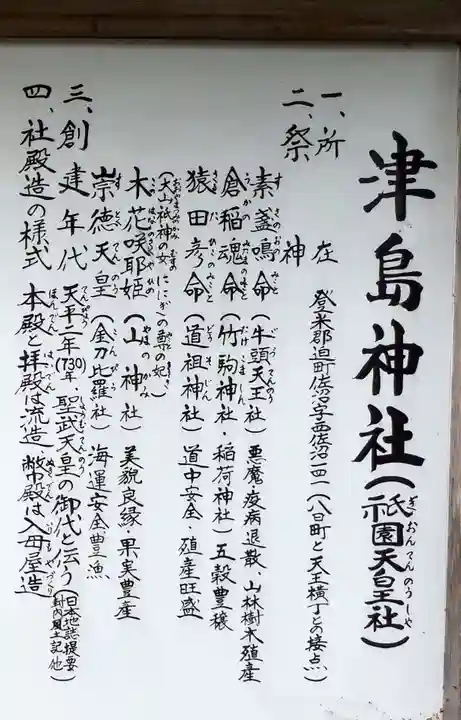 津島神社(祇園天皇社)
ぎおんてんのうしゃ
一、所在 登米郡迫町佐沼字西佐沼一四一(八日町と天王横丁との接点)
二、祭神
素盞鳴命(牛頭天王社)悪魔疫病退散、山林樹木殖産
倉稲魂命(竹駒神社・稲荷神社)五穀豊穣
猿田彦命(道祖神社)道中安全・殖産旺盛
(大山祇神の女、ににぎの尊の妃)
木花咲耶姫(山神社)美貌良縁・果実豊産
崇徳天皇(金刀比羅社)海運安全豊漁
三、創建年代 天平二年(730)年、聖武天皇の御代と伝う(日本地誌提要 封内風土記他)
四、社殿造の様式 本殿と拝殿は流造・幣殿は入母屋造